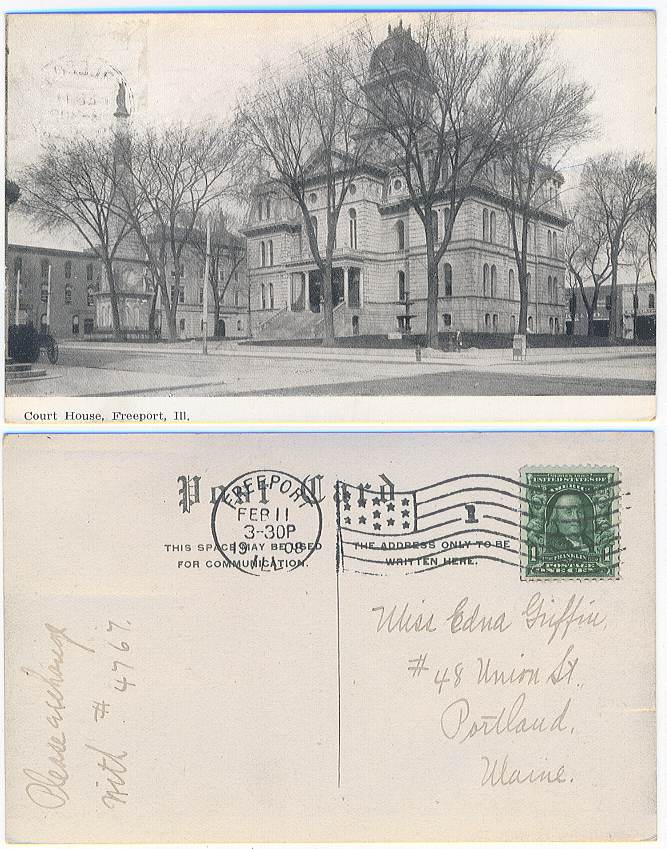 Court House, Freeport, Ill.
Post Card
THIS SPACE MAY BE USED
FOR COMMUNICATION.
THE ADDRESS ONLY TO BE
WRITTEN HERE.
FREEPORT
FEB 11
3-30P
1908
ILL.
1
UNITED STATES OF
AMERICA
FRANKLIN
1
1
POSTAGE
ONE CENT
Miss Edna Griffin,
# 48 Union St.,
Portland,
Maine.
Please exchange
with # 4767.